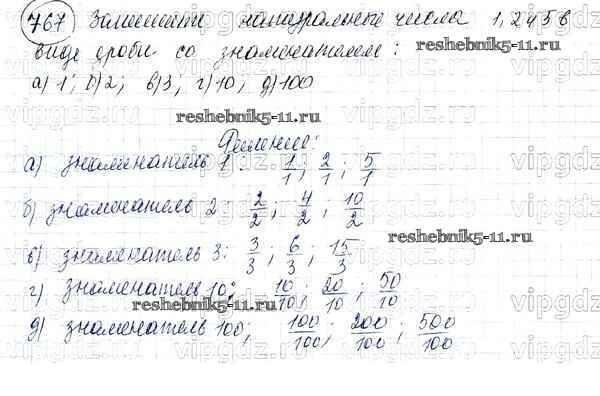 767 Запишите натуральные числа 1, 2 и 5 в
виде дроби со знаменателем:
а) 1; б) 2; в) 3; г) 10; д) 100
reshebnik5-11.ru
reshebnik5-11.ru
Решение:
а) знаменатель 1: 1/1; 2/1; 5/1
б) знаменатель 2: 2/2; 4/2; 10/2
в) знаменатель 3: 3/3; 6/3; 15/3
reshebnik5-11.ru
г) знаменатель 10: 10/10; 20/10; 50/10
reshebnik5-11.ru
д) знаменатель 100; 100/100; 200/100; 500/100
vipgdz